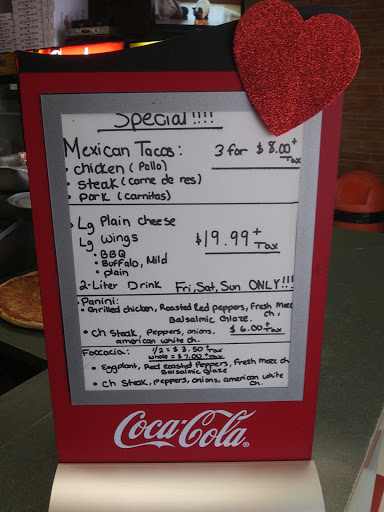 Special!!!!
Mexican Tacos: 3 for $8.00+ Tax
• chicken (Pollo)
• steak (carne de res)
• pork (carnitas)
• Lg Plain cheese
Lg wings $19.99+ Tax
• BBQ
• Buffalo, Mild
• plain
2-Liter Drink Fri, Sat, Sun ONLY!!!
• Panini:
• Grilled chicken, Roasted Red peppers, Fresh Mozz ch,
Balsalmic Glaze.
• ch steak, peppers, onions, $6.00+Tax
american white ch.
Foccacia: 1/2 = $3.50+Tax
whole = $7.00+Tax
• Eggplant, Red roasted Peppers, Fresh mozz ch
Balsalmic glaze
• ch steak, peppers, onions, american white
ch.
Coca-Cola